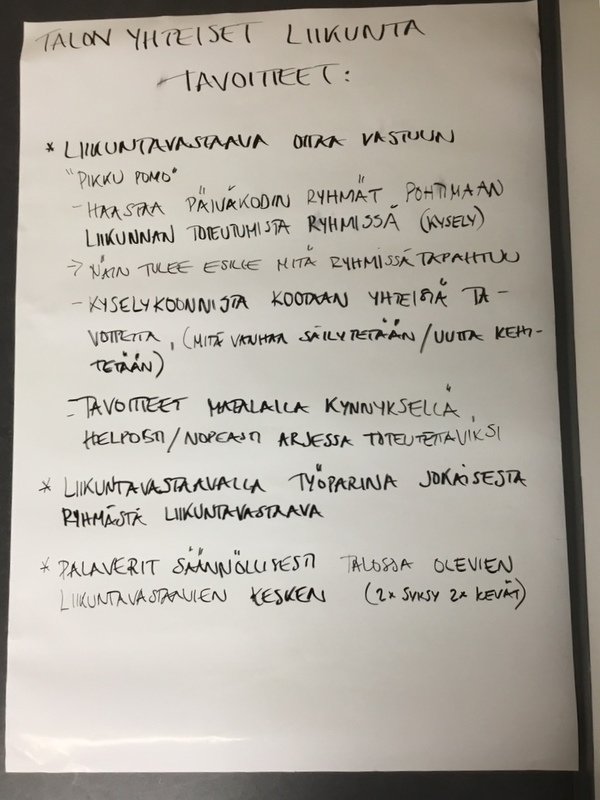 TALON YHTEISET LIIKUNTA
TAVOITTEET:
* LIIKUNTAVASTAAVA OTTAA VASTUUN
"PIKKU POMO"
- HAASTAA PÄIVÄKODIN RYHMÄT POHTIMAAN
LIIKUNNAN TOTEUTUMISTA RYHMISSÄ (KYSELY)
-> NÄIN TULEE ESILLE MITÄ RYHMISSÄ TAPAHTUU
- KYSELYKOONNISTA KOOTAAN YHTEISTÄ TA-
VOITETTA, (MITÄ VANHAA SÄILYTETÄÄN/UUTTA KEHI-
TETÄÄN)
- TAVOITTEET MATALALLA KYNNYKSELLÄ,
HELPOSTI/NOPEASTI ARJESSA TOTEUTETTAVIKSI
* LIIKUNTAVASTAAVALLA TYÖPARINA JOKAISESTA
RYHMÄSTÄ LIIKUNTAVASTAAVA
* PALAVERIT SÄÄNNÖLLISESTI TALOSSA OLEVIEN
LIIKUNTAVASTAAVIEN KESKEN (2x SYKSY 2x KEVÄT)